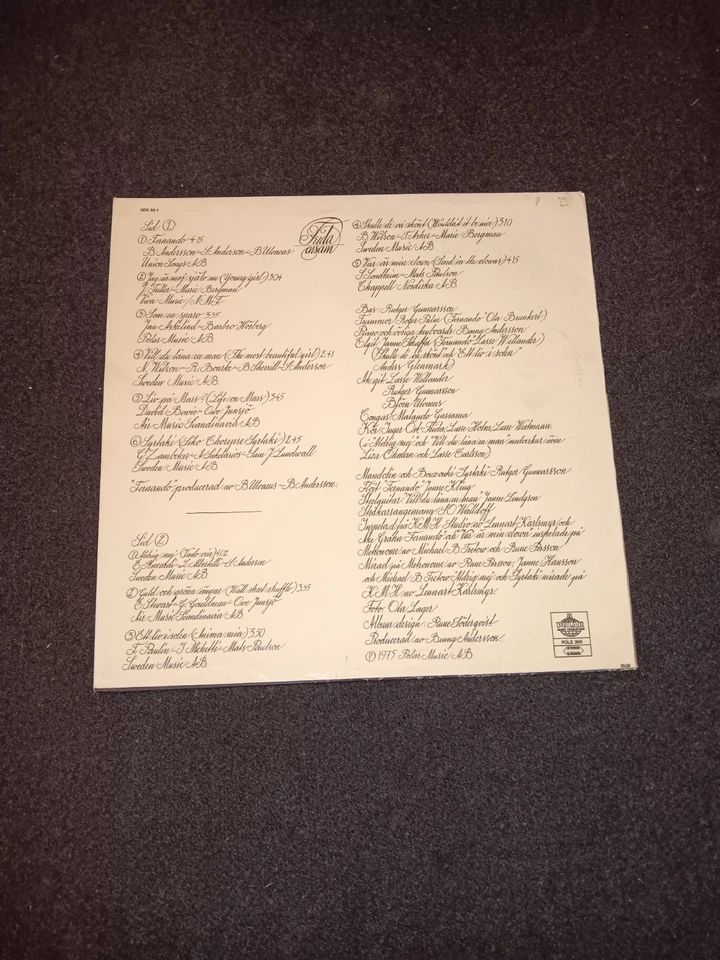 GDC 50-1
Frida ensam
Sid 1
1 Fernando 4.15
B Andersson-S. Anderson-B Ulvaeus
Union Songs AB
2 Jag är mej själv nog (Young girl) 3.04
J. Fuller-Marie Bergman
Viva Music/NMF
3 Som en sparv 3.35
Jan Askelind-Barbro Hörberg
Polar Music AB
4 Vill du låna en man (The most beautiful girl) 2.41
N. Wilson-R. Bourke-B. Sherrill-S. Anderson
Sweden Music AB
5 Liv på Mars? (Life on Mars) 3.45
David Bowie-Owe Junsjö
Air Music Scandinavia AB
6 Syrtaki (Siko Chorepse Syrtaki) 2.45
G Zambetas-A Sakelarios-Sam J Lundwall
Sweden Music AB
"Fernando" producerad av B Ulvaeus-B Andersson.
Sid 2
1 Aldrig mej
Sweden Music AB
2 Guld och gröna ängar (Wall street shuffle) 3.35
E. Stewart-G. Gouldman-Owe Junsjö
Air Music Scandinavia AB
3 Ett liv i solen (Anima mia) 3.50
F. Paulin-I Michetti-Mats Paulson
Sweden Music AB
4 Skulle de va skönt (Wouldn't it be nice) 3.10
B Wilson-T Asher-Marie Bergman
Sweden Music AB
5 Var är min clown (Send in the clowns) 4.15
S Sondheim-Mats Paulson
Chappell Nordiska AB
Bas: Rutger Gunnarsson
Trummor: Roger Palm ("Fernando" Ola Brunkert)
Piano och övriga keyboards: Benny Andersson
Elgit: Janne Schaffer ("Fernando" Lasse Wellander)
("Skulle de va skönt" och "Ett liv i solen"
Anders Glenmark)
Ak.git: Lasse Wellander
Rutger Gunnarsson
Björn Ulvaeus
Congas: Malando Gassama
Kör: Inger Öst, Frida, Lasse Holm, Lasse Westmann
(i "Aldrig mej" och "Vill du låna en man" medverkar även
Liza Öhman och Lasse Carlsson)
Mandolin och Bouzouki "Syrtaki" Rutger Gunnarsson
Flöjt "Fernando" Janne Kling
Steelguitar "Vill du låna en man" Janne Lindgren
Stråkarrangemang: S.O. Walldoff
Inspelad på K.M.H. Studio av Lennart Karlsmyr och
Åke Grahn. "Fernando" och "Var är min clown" inspelade på
Metronome av Michael B Tretow och Rune Persson
Mixad på Metronome av Rune Persson, Janne Hansson
och Michael B Tretow. "Aldrig mej" och "Syrtaki" mixade på
K.M.H. av Lennart Karlsmyr
Foto: Ola Lager
Album design: Rune Söderqvist
Producerad av Benny Andersson
℗ 1975 Polar Music AB
POLS 265
STEREO